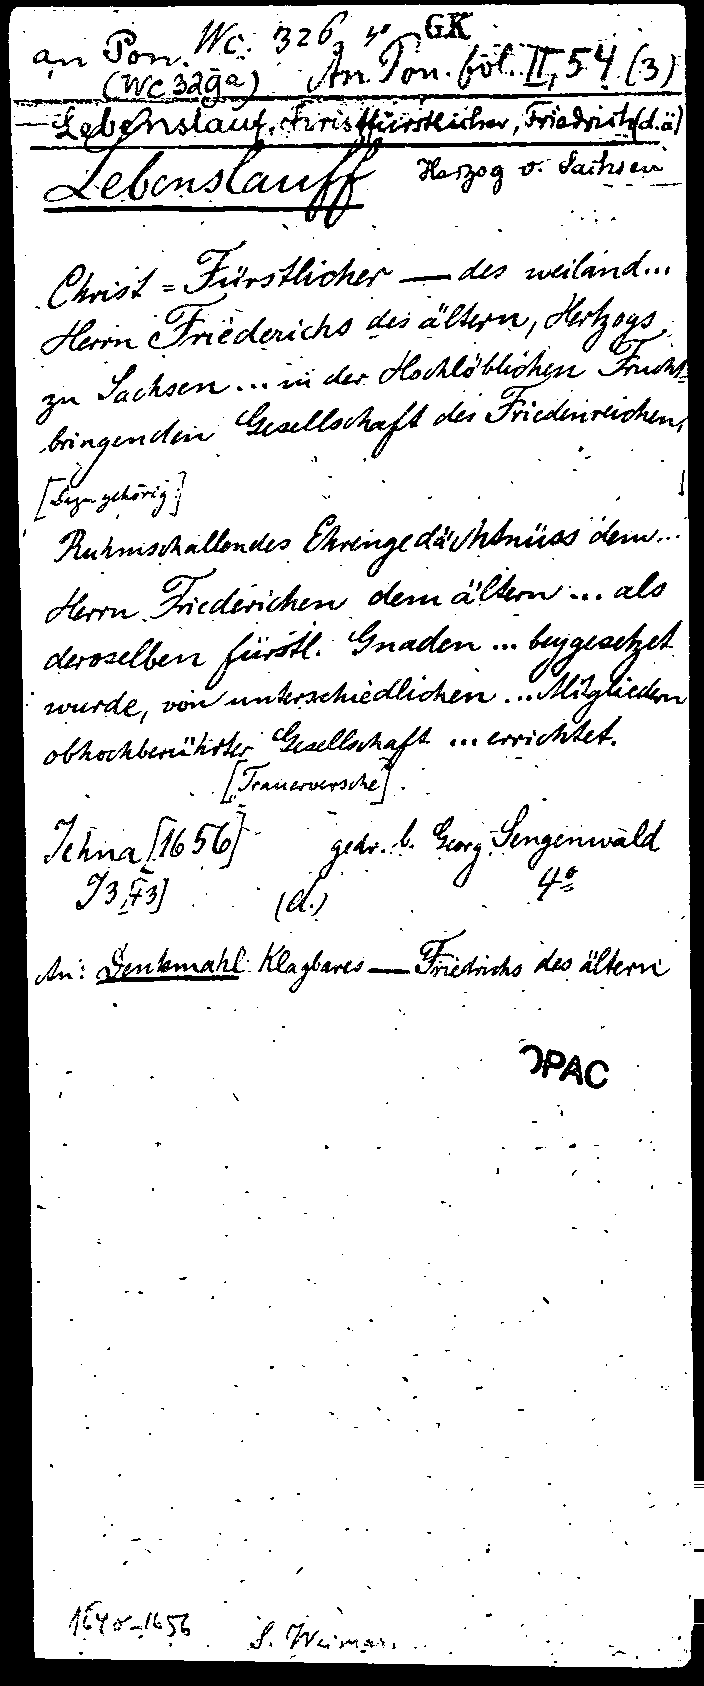 an Pon. Wc. 326, 4° GK
(Wc 329a) An Pon. fol. II, 54 (3)
Lebenslauf, Christfürstlicher, Friedrich (d. ä)
Lebenslauff Herzog v. Sachsen
Christ = Fürstlicher — des weiland...
Herrn Friederichs des ältern, Hertzogs
zu Sachsen ... in der Hochlöblichen Frucht=
bringenden Gesellschaft des Friedenreichen,
[Dazu gehörig:]
Ruhmschallendes Ehrengedächtnüss dem...
Herrn Friederichen dem ältern ... als
deroselben fürstl. Gnaden ... beygesetzet
wurde, von unterschiedlichen ... Mitgliedern
obhochberührter Gesellschaft ... errichtet.
[Trauerversche].
Jehna [1656] gedr. b. Georg Sengenwald
(d.) 4°
An: Denkmahl Klagbares — Friedrichs des ältern
OPAC
1640-1656 S. Weimar.